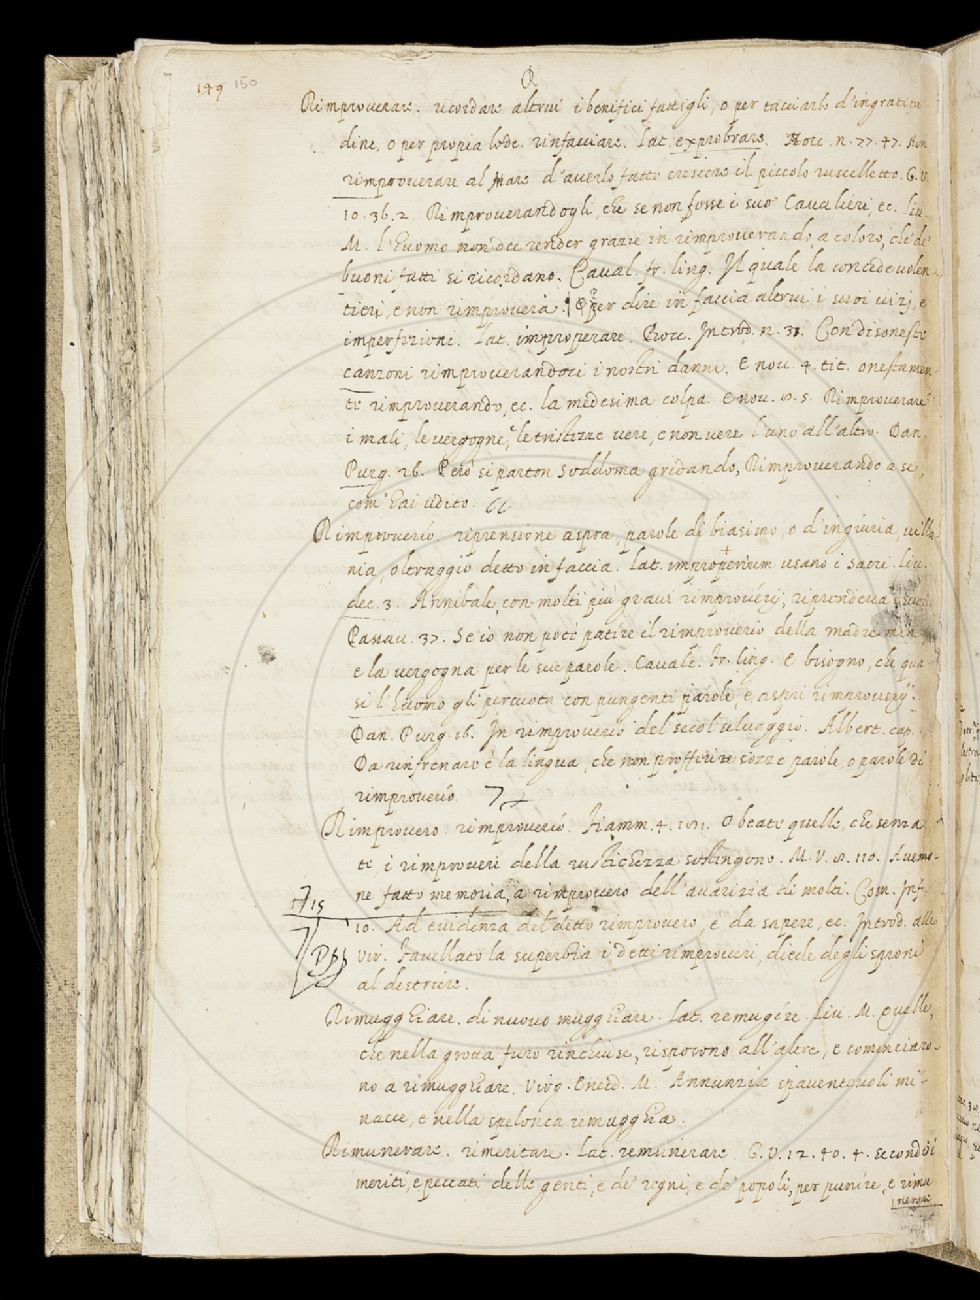 149 150
R
Rimprouerare. ricordare altrui i benifici fattigli, o per tacciarlo d'ingratitu
dine, o per propia lode. rinfacciare. Lat. exprobrare. Bocc. n. 77. 47. Non
rimprouerare al Mare d'auerlo fatto crescere il piccolo ruscelletto. G. V.
10. 36. 2. Rimprouerandogli, che se non fosse i suo' Caualieri, ec. Liu.
M. l'huomo non dee render grazie in rimprouerando a coloro, che de'
buoni fatti si ricordano. Caual. fr. ling. Il quale la concede volen
tieri, e non rimprouera. | per dire in faccia altrui i suoi vizj, e
imperfizioni. Lat. improperare. Bocc. Introd. n. 31. Con disoneste
canzoni rimprouerandoci i nostri danni. E nou. 4. tit. onestamen-
te rimprouerando, ec. la medesima colpa. E nou. 8. 5. Rimprouerare
i mali, le vergogne, le tristizze vere, e non vere l'uno all'altro. Dan.
Purg. 26. Però si parton Soddoma gridando, Rimprouerando a se,
com' hai udito.
Rimprouerio. riprensione aspra, parole di biasimo, o d'ingiuria, villa-
nia, oltraggio detto in faccia. Lat. improperium usano i Sacri. Liu.
dec. 3. Annibale con molti più graui rimprouerj, riprendeua i suoi.
Passau. 37. Se io non pote patire il rimprouerio della madre mia
e la vergogna per le sue parole. Cauale. fr. ling. E bisogno, che qua
si l'huomo gli percuota con pungenti parole, e aspri rimprouerj.
Dan. Purg. 16. In rimprouerio del secol seluaggio. Albert. cap.
Da rinfrenare è la lingua, che non profferire sozze parole, o parole di
rimprouerio.
Rimprouero. rimprouerio. Fiamm. 4. 101. O beate quelle, che senza
te, i rimproueri della rustichezza sostengono. M. V. 8. 110. Auemo-
ne fatto memoria, a rimprouero dell'auarizia di molti. Com. Inf.
10. Ad euidenza del detto rimprouero, è da sapere, ec. Introd. alle
vir. Fauellato la superbia i detti rimproueri, diede degli sproni
al destriere.
Rimugghiare. di nuouo mugghiare. Lat. remugire. Liu. M. Quelle,
che nella grotta furo rinchiuse, risposono all'altre, e cominciaro-
no a rimugghiare. Virg. Eneid. M. Annunzile spaventeuoli mi-
nacce, e nella spelonca rimugghia.
Rimunerare. rimeritare. Lat. remunerare G. V. 12. 40. 4. Secondo i
meriti, e peccati delle genti, e de' regni, e de' popoli, per punire, e rimu
nerare